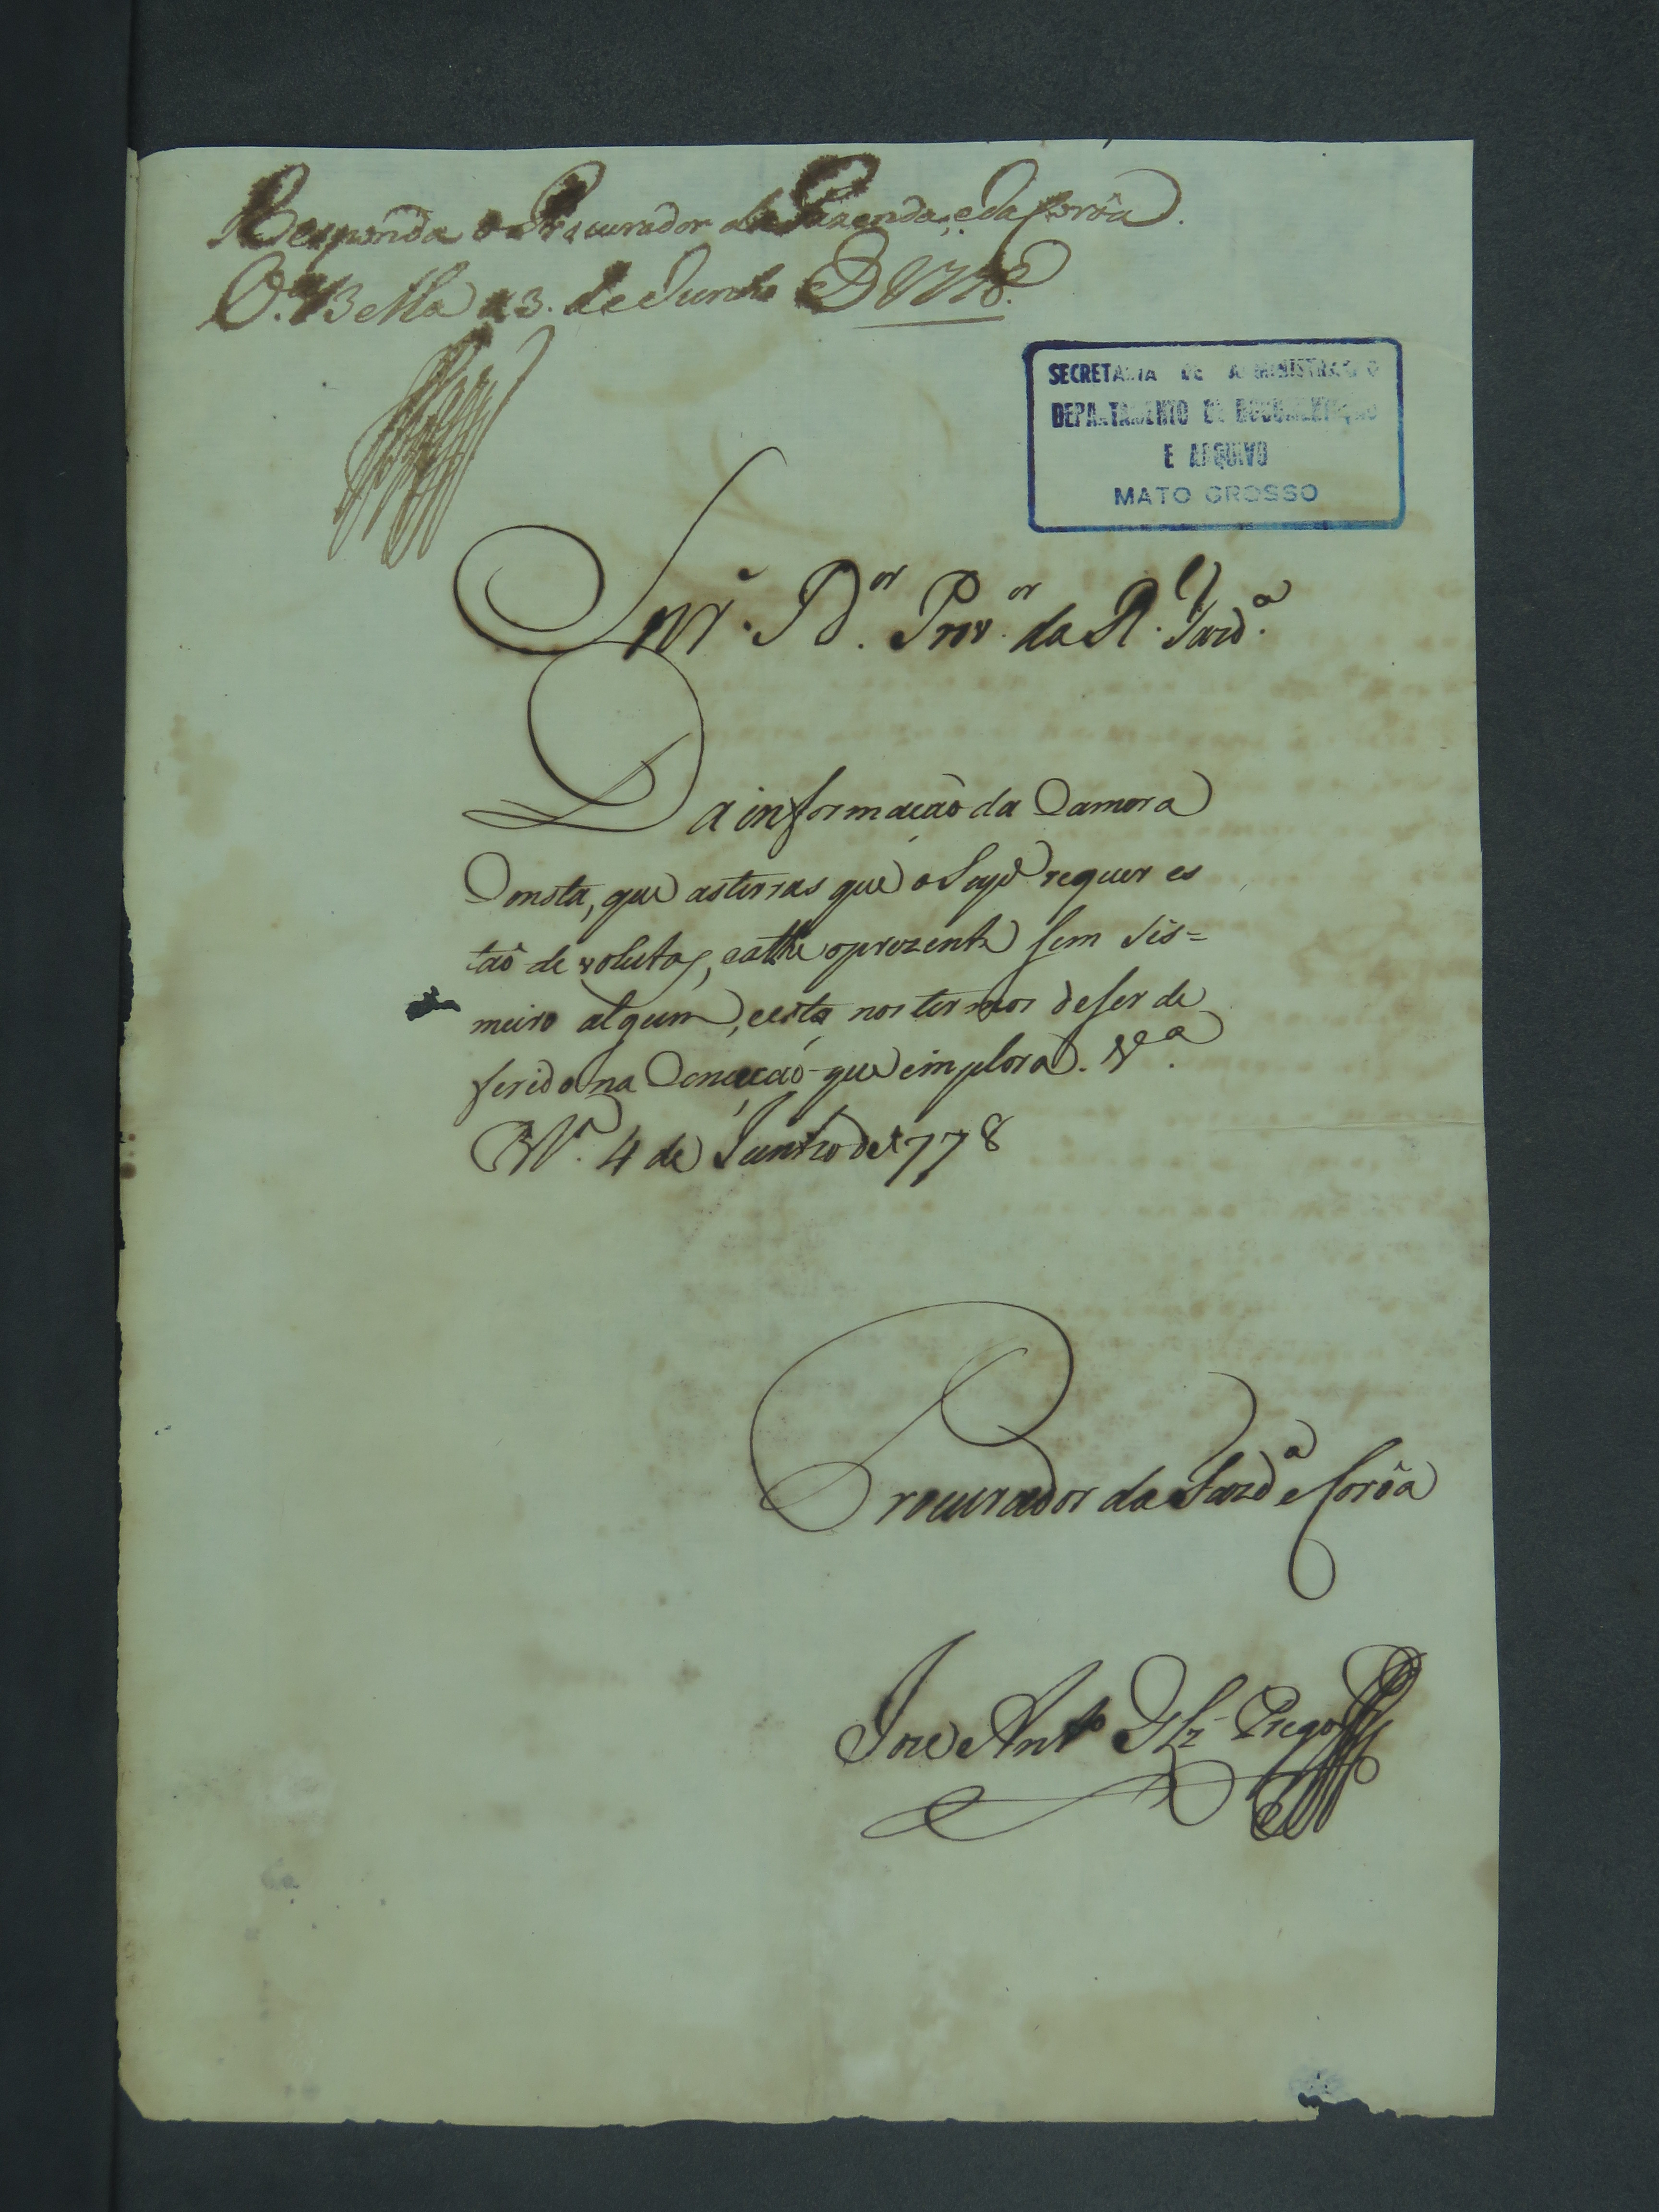 Responda o Procurador da Fazenda, e da Corôa.
V.ª Bella a 3. de Junho D 1778.
SECRETARIA DE ADMINISTRAÇÃO
DEPARTAMENTO DE DOCUMENTAÇÃO
E ARQUIVO
MATO GROSSO
Snr. D.or Prov.or da R.l Fazd.ª
Da informação da Camera
Consta, que as terras que o Supp.e requer es
taõ devolutas, e athe o prezente sem sis=
meiro algum, e esta nos termos de ser de
ferido na Conceçaõ que emplora. V.ª
B.ª 4 de Junho de 1778
Procurador da Fazd.ª e Corôa
Joze Ant.o Glz Prego